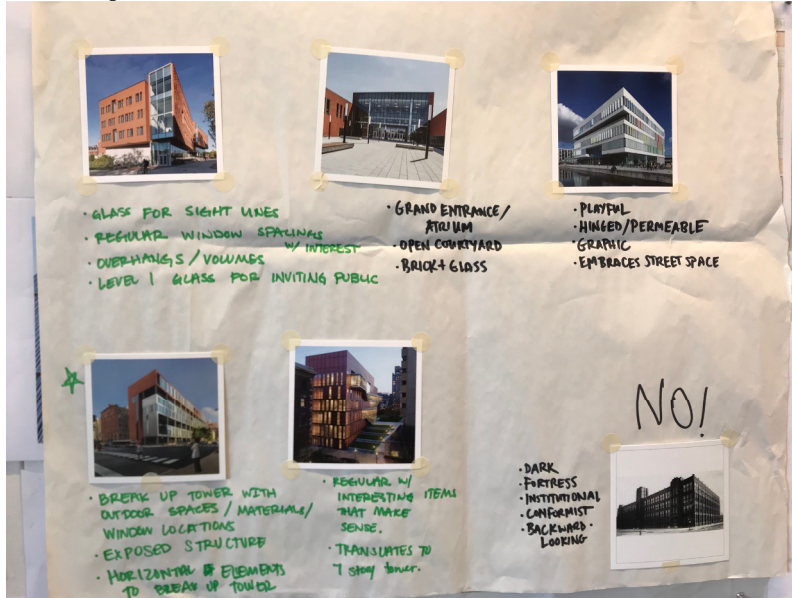 · GLASS FOR SIGHT LINES
· REGULAR WINDOW SPACINGS
W/ INTEREST
· OVERHANGS / VOLUMES
· LEVEL 1 GLASS FOR INVITING PUBLIC
· GRAND ENTRANCE/
ATRIUM
· OPEN COURTYARD
· BRICK + GLASS
· PLAYFUL
· HINGED/PERMEABLE
· GRAPHIC
· EMBRACES STREET SPACE
· BREAK UP TOWER WITH
OUTDOOR SPACES / MATERIALS/
WINDOW LOCATIONS
· EXPOSED STRUCTURE
· HORIZONTAL ELEMENTS
TO BREAK UP TOWER
· REGULAR W/
INTERESTING ITEMS
THAT MAKE
SENSE.
· TRANSLATES TO
7 story tower.
NO!
· DARK
· FORTRESS
· INSTITUTIONAL
· CONFORMIST
· BACKWARD -
LOOKING